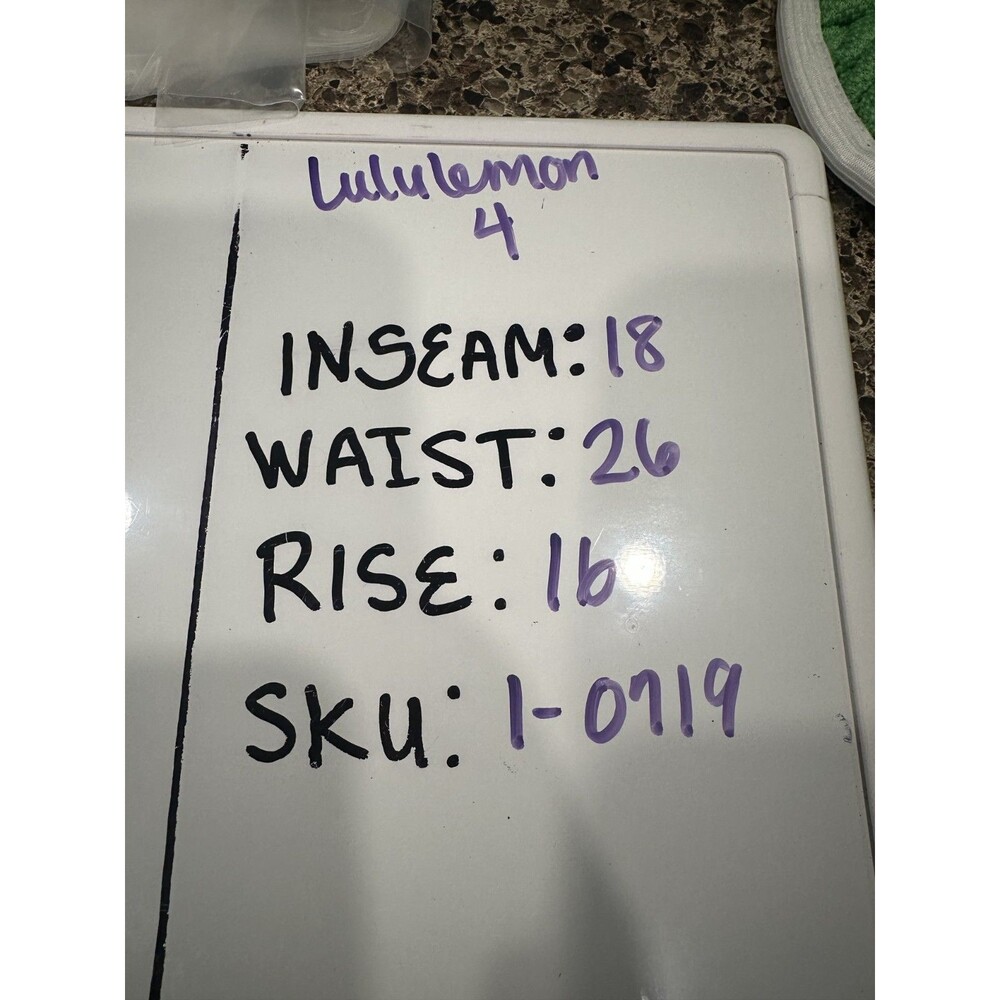 lululemon
4
INSEAM: 18
WAIST: 26
RISE: 16
SKU: 1-0719